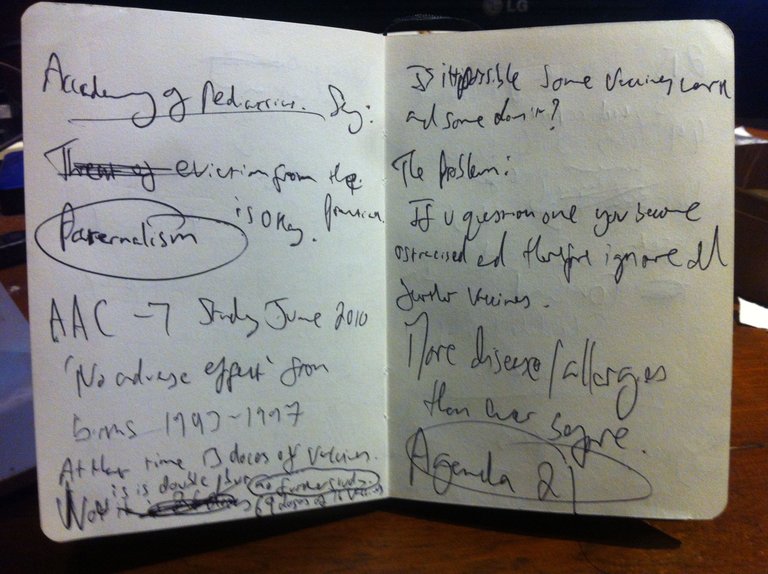 LG
Academy of Pediatrics. Say:
Threat of eviction from the
Practice
is okay.
Paternalism
AAC -7 Study June 2010
'No adverse effect' from
births 1993-1997
At that time 13 doses of vaccines.
is is double, but no further study.
Now it 69 doses of 16 vaccines
Is it possible some vaccines work
and some don't?
The Problem:
If u question one you become
ostracised and therefore ignore all
further vaccines.
More disease/allergies
than ever before.
Agenda 21